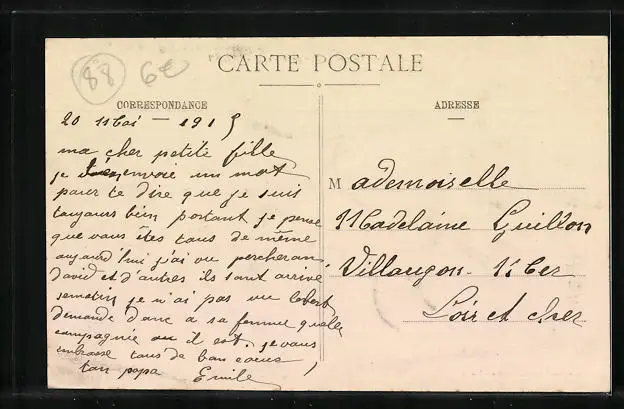 88 6€
CARTE POSTALE
CORRESPONDANCE
20 Mai 1915
ma cher petite fille
je envoie un mot
pour te dire que je suis
toujours bien portant je pense
que vous êtes tous de même
aujourd'hui j'ai vu percheran
david et d'autres ils sont arrivé
se matin je n'ai pas vu
demande donc a sa femme quelle
compagnie ou il est. je vous
embrasse tous de bon coeur
ton papa Emile
ADRESSE
Mademoiselle
Madelaine Guillon
Loir et cher